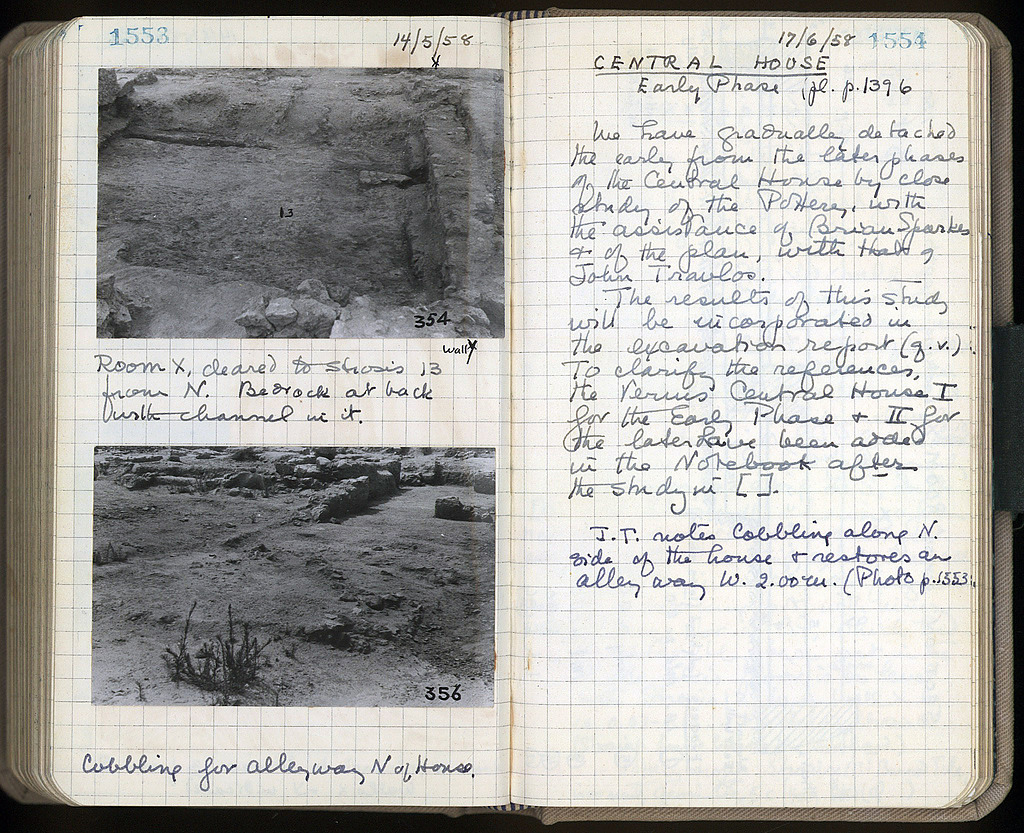 1553
14/5/58
X
13
354
wall X
Room X, cleared to strosis 13
from N. Bedrock at back
with channel in it.
356
Cobbling for alleyway N of House.
17/6/58 1554
CENTRAL HOUSE
Early Phase pl. p.1396
We have gradually detached
the early from the later phases
of the Central House by close
study of the Pottery, with
the assistance of Brian Sparkes
& of the plan, with that of
John Travlos.
The results of this study
will be incorporated in
the excavation report (q.v.)
To clarify the references,
the Central House I
for the Early Phase & II for
the later have been added
in the Notebook after
the study in [ ].
J.T. notes Cobbling along N.
side of the house & restores an
alley way W. 2.00m. (Photo p.1553)